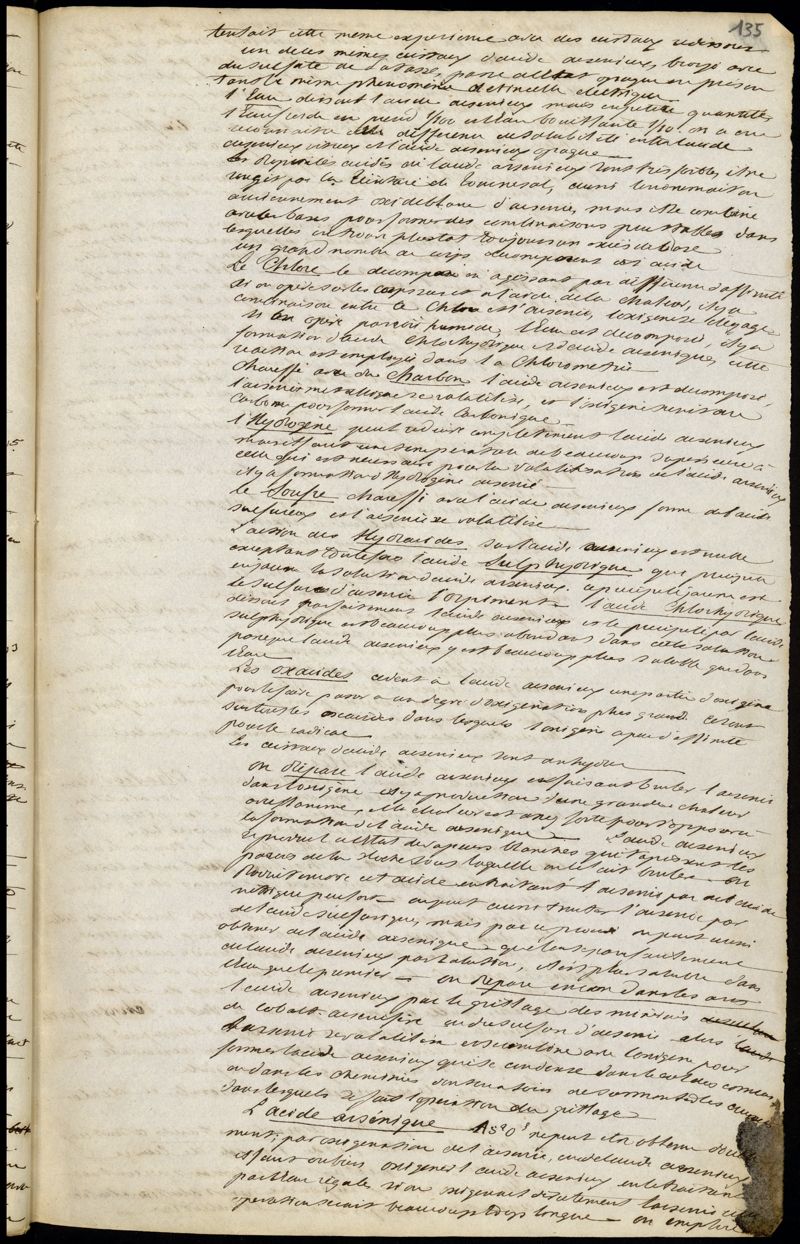 135
tentait cette meme experience avec des cristaux redissous
un de ces memes cristaux d'acide arsenieux, broyé avec
du sulfate de Potasse, passe a l'état opaque en presen
tant le même phenomène d'étincelle electrique
l'Eau dissout l'acide arsenieux mais en petite quantité,
l'Eau froide en prend 1/100 et l'Eau bouillante 1/10. on a cru
reconnaitre une difference de solubilité entre l'acide
arsenieux vitreux et l'acide arsenieux opaque
les proprietés acides de l'acide arsenieux sont très faibles, il ne
rougit pas la teinture de tournesol, aussi le nommait on
anciennement oxide blanc d'arsenic, mais il se combine
avec les bases pour former des combinaisons peu stables dans
lesquelles on trouve plustot toujours un excès de base
un grand nombre de corps decomposent cet acide
Le Chlore le decompose en agissant par difference d'affinité
si on opère sur les corps secs et a l'aide de la chaleur, il y a
combinaison entre le Chlore et l'arsenic, l'oxigene se degage
si on opère par voie humide, l'Eau est decomposée, il y a
formation d'acide Chlorhydrique et d'acide arsenique, cette
reaction est employée dans la Chlorometrie
chauffé avec du Charbon l'acide arsenieux est decomposé,
l'arsenic metallique se volatilise, et l'oxigène s'unit au
Carbone pour former l'acide Carbonique
l'Hydrogène peut reduire complètement l'acide arsenieux
mais il faut une temperature de beaucoup superieure à
celle qui est necessaire pour la volatilisation de l'acide arsenieux
il y a formation d'Hydrogène arsenié
Le Soufre chauffé avec l'acide arsenieux forme de l'acide
sulfureux et l'arsenic se volatilise
L'action des Hydracides sur l'acide arsenieux est nulle
exceptant toutefois l'acide Sulphydrique que precipite
en jaune la solution d'acide arsenieux. ce precipité jaune est
le sulfure d'arsenic l'orpiment l'acide Chlorhydrique
dissout parfaitement l'acide arsenieux et le precipité par l'acide
sulphydrique est beaucoup plus abondant dans cette solution
parce que l'acide arsenieux y est beaucoup plus soluble que dans
l'Eau
Les oxacides cedent a l'acide arsenieux une partie d'oxigène
pour le faire passer a un degré d'oxigenation plus grand ce sont
surtout les oxacides dans lesquels l'oxigène a peu d'affinité
pour le radical
Les cristaux d'acide arsenieux sont anhydres
on Prepare l'acide arsenieux en faisant bruler l'arsenic
dans l'oxigène il y a production d'une grande chaleur
avec flamme, et la chaleur est assez forte pour s'opposer a
la formation de l'acide arsenique L'acide arsenieux
se produit a l'état de vapeurs blanches qui tapissent les
parois de la cloche sous laquelle on le fait bruler on
produit encore cet acide en traitant l'arsenic par de l'acide
nitrique peu fort on peut aussi traiter l'arsenic par
de l'acide sulfurique, mais par ce procédé on peut aussi
obtenir de l'acide arsenique que l'on separe facilement
de l'acide arsenieux par solution, étant plus soluble dans
l'Eau que le premier on Prepare encore dans les arts
l'acide arsenieux par le grillage des minérais
de cobalt arsenifère ou du sulfure d'arsenic alors
l'arsenic se volatilise et se combine avec l'oxigène pour
former l'acide arsenieux qui se condense dans le col des cornues
ou dans les cheminées
dans lesquels se fait l'operation du grillage
L'acide arsénique As²O⁵ se peut etre obtenu
ment, par oxigenation de l'arsenic, ou de l'acide arsenieux
il faut ou bien oxigener l'acide arsenieux en le traitant
par l'Eau régale si on oxigenait directement l'arsenic
operation serait beaucoup trop longue on emploie